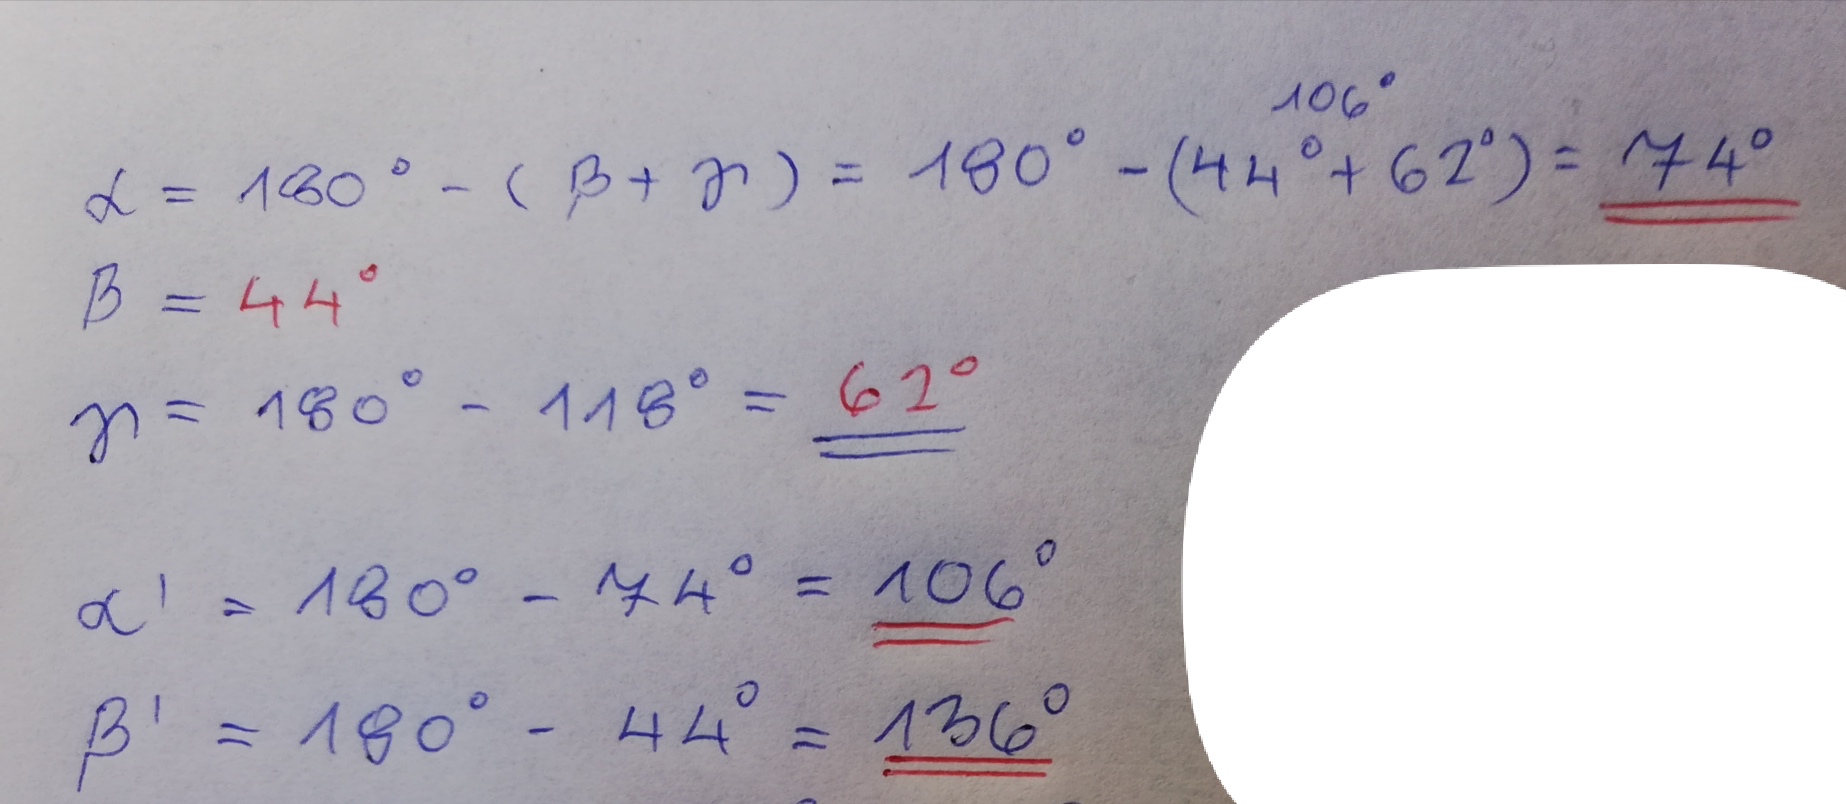 106°
α = 180° - (β + γ) = 180° - (44° + 62°) = 74°
β = 44°
γ = 180° - 118° = 62°
α' = 180° - 74° = 106°
β' = 180° - 44° = 136°